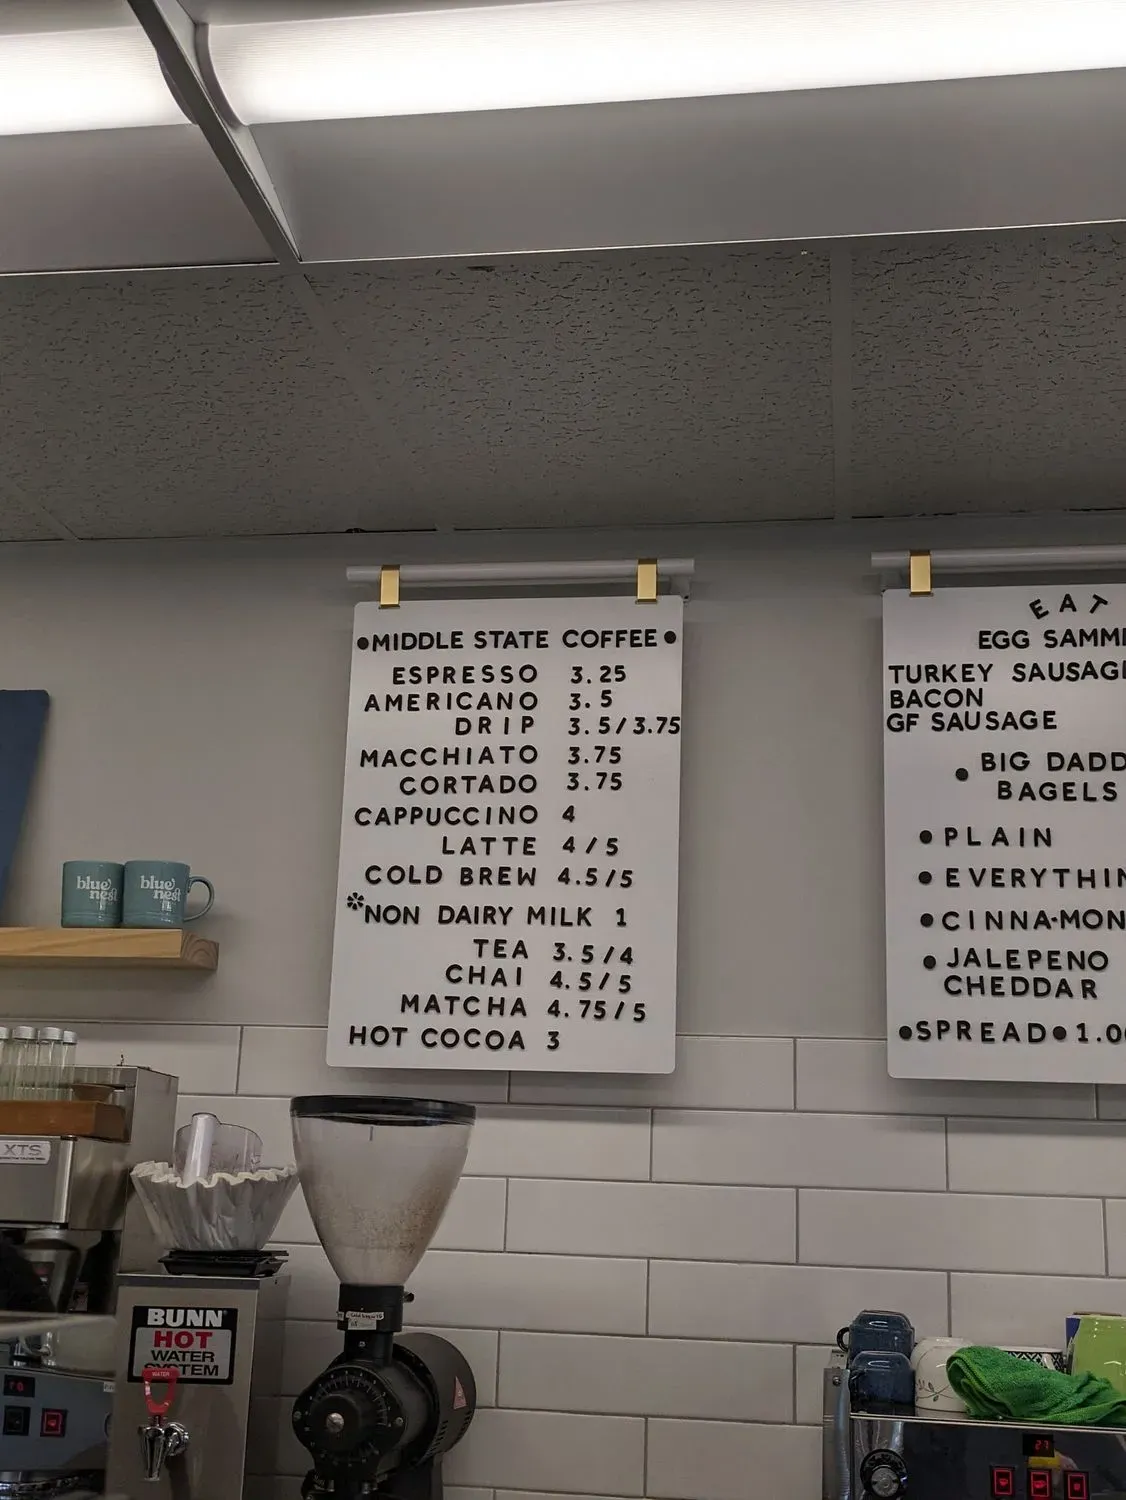 ●MIDDLE STATE COFFEE●
ESPRESSO 3.25
AMERICANO 3.5
DRIP 3.5/3.75
MACCHIATO 3.75
CORTADO 3.75
CAPPUCCINO 4
LATTE 4/5
COLD BREW 4.5/5
*NON DAIRY MILK 1
TEA 3.5/4
CHAI 4.5/5
MATCHA 4.75/5
HOT COCOA 3
EAT
EGG SAMM
TURKEY SAUSAG
BACON
GF SAUSAGE
● BIG DADD
BAGELS
● PLAIN
● EVERYTHIN
● CINNA-MON
● JALEPENO
CHEDDAR
●SPREAD●1.0
blue nest
blue nest
XTS
BUNN
HOT
WATER
SYSTEM
WATER
27